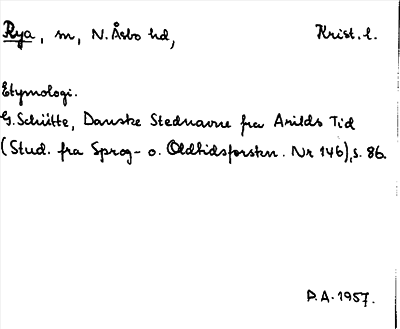 Rya, m, N. Åsbo hd, Krist. l.
Etymologi.
G. Schütte, Danske Stednavne fra Arilds Tid
(Stud. fra Sprog- o. Oldtidsforskn. Nr 146), s. 86.
P.A. 1957.